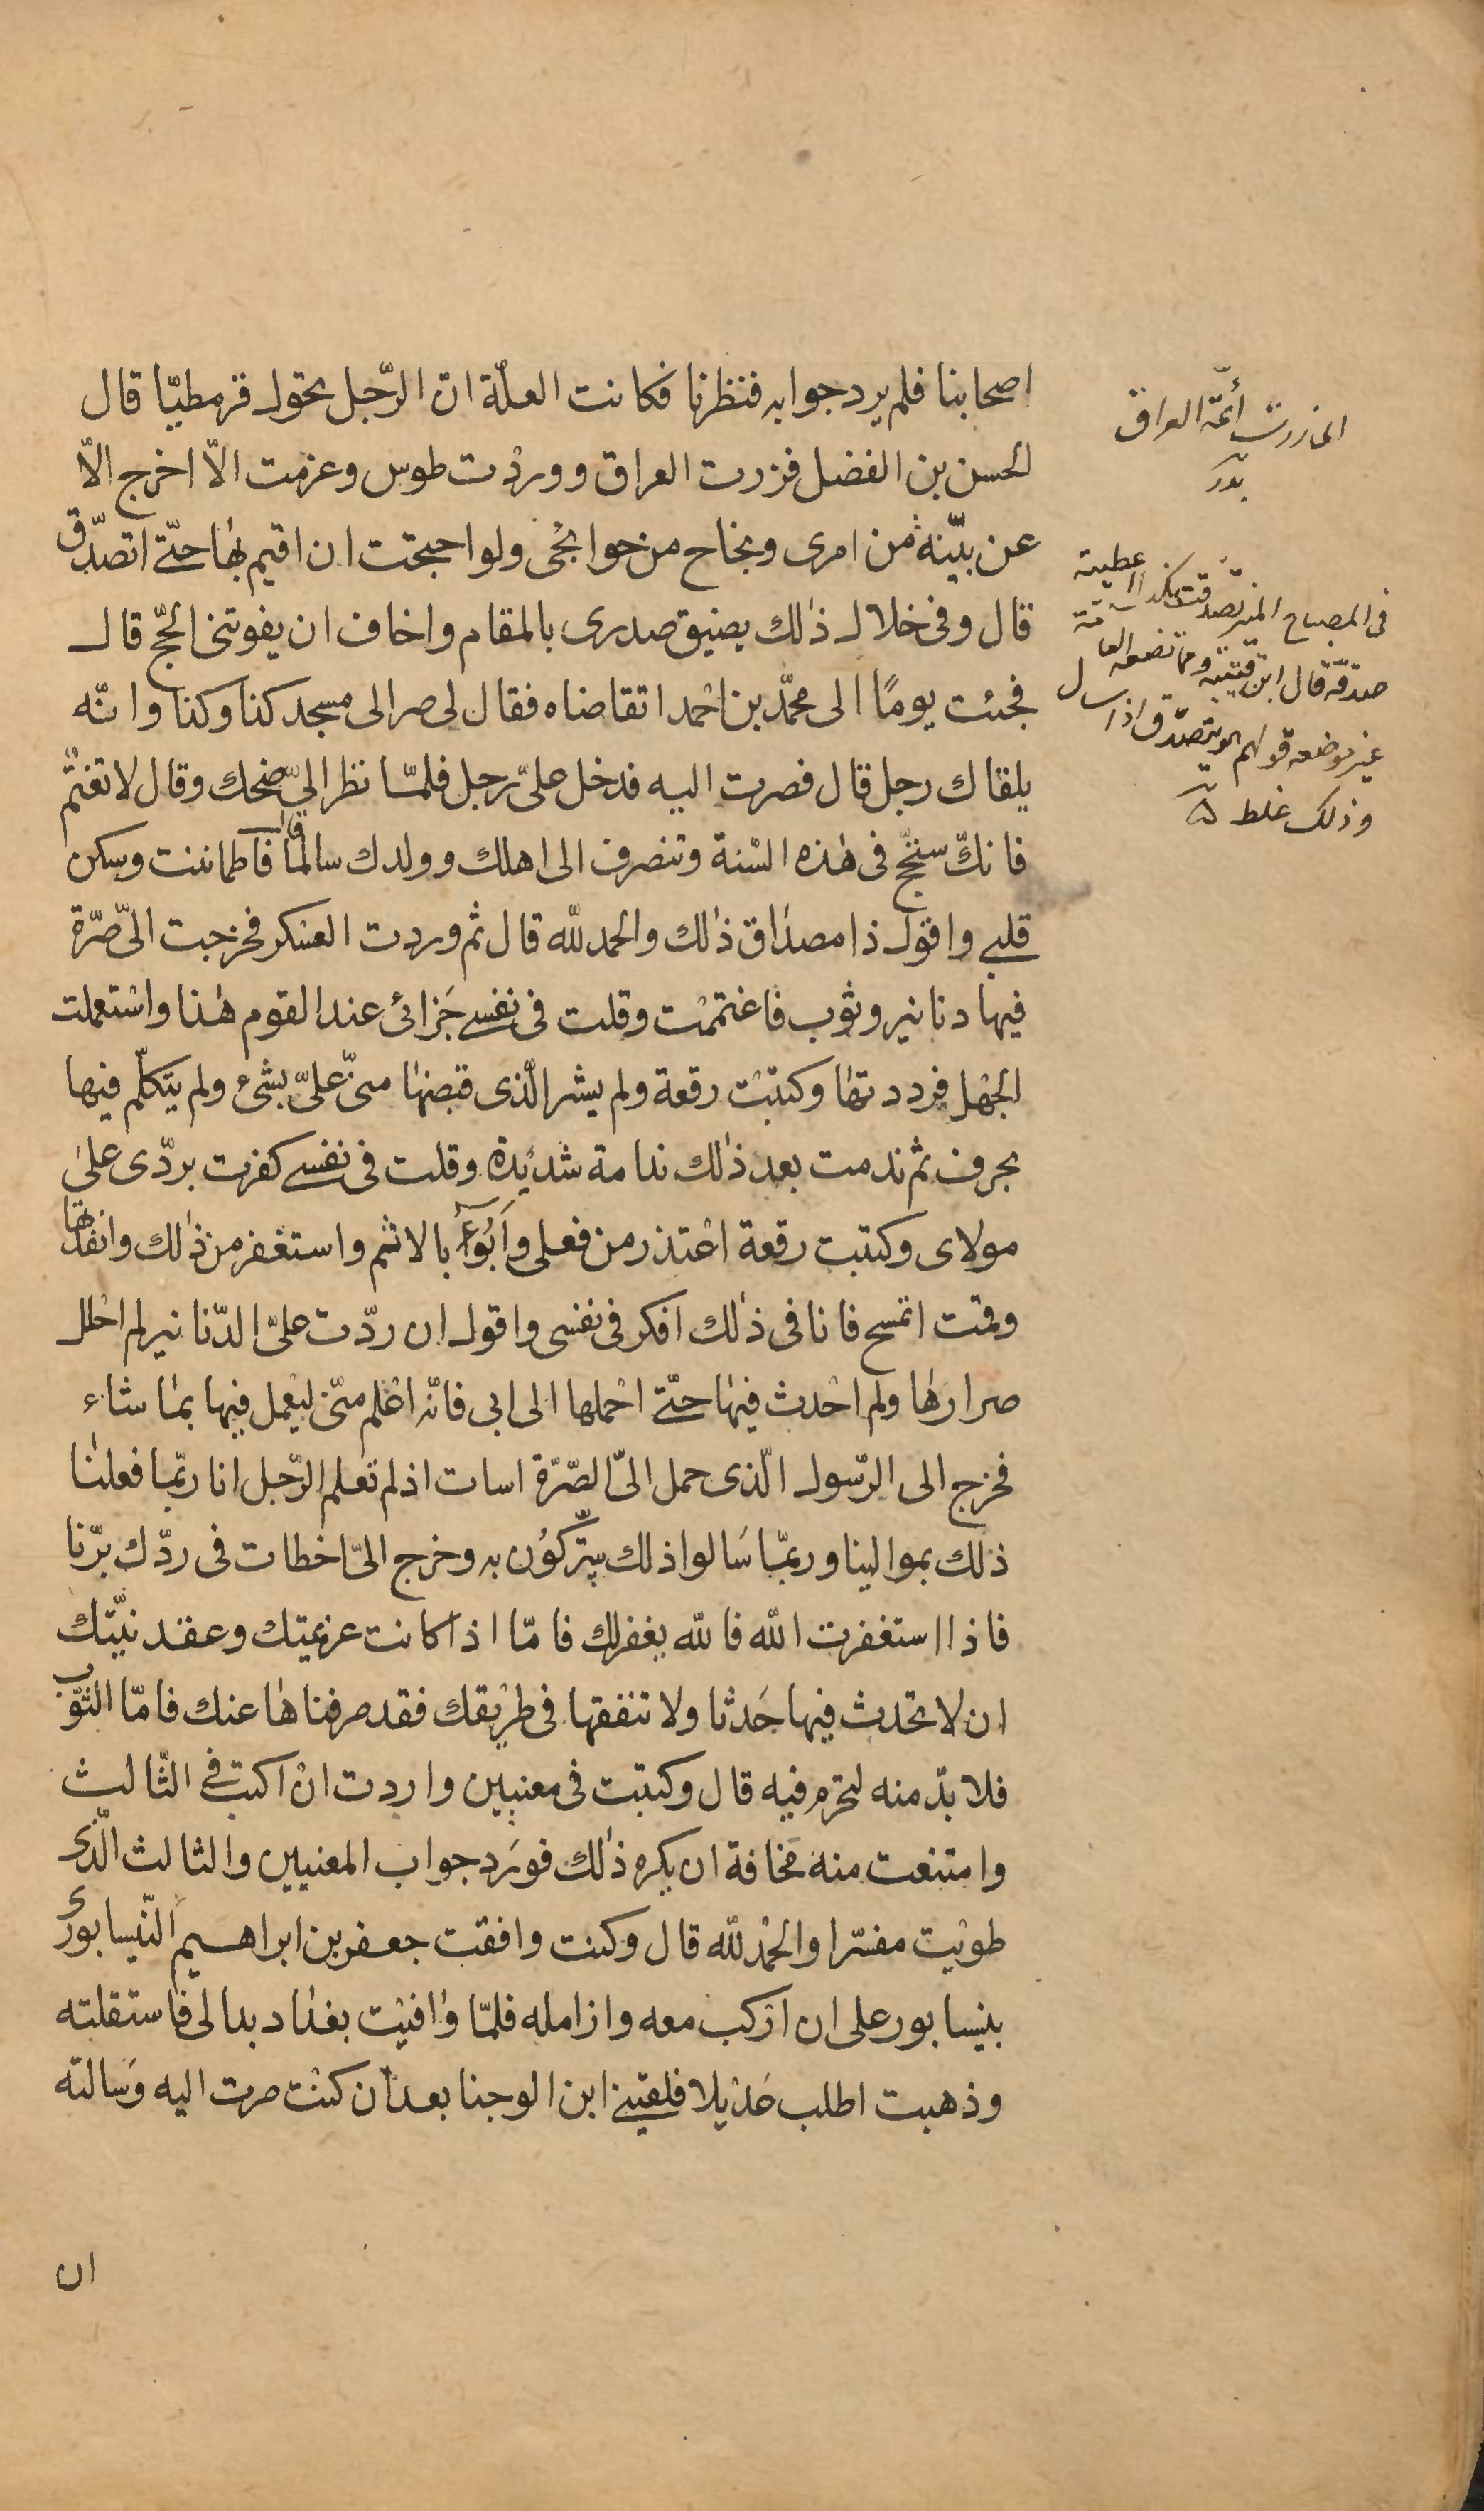 اصحابنا فلم يرد جوابه فنظرنا فكانت العلّة انّ الرّجل تحول قرمطيّا قال
الحسن بن الفضل فزرت العراق ووردْت طوس وعزمت الاّ اخرج الاّ
عن بيّنة من امرى ونجاح من حوائجى ولو احتجت ان اقيم بها حتّى اتصدّق
قال وفى خلال ذٰلك يضيق صدرى بالمقام واخاف ان يفوتنى الحجّ قال
فجئت يومًا الى محمّد بن احْمد اتقاضاه فقال لى صر الى مسجد كذا وكذا وانّه
يلقاك رجل قال فصرت اليه فدخل علىّ رجل فلمّا نظر اليّ ضحك وقال لا تغتمّ
فانكّ ستحّج فى هٰذه السّنة وتنصرف الى اهلك وولدك سالمًا قال فاطماننت وسكن
قلبى واقول ذا مصداق ذٰلك والحمد للّه قال ثم وردت العسْكر فخرجت الىّ صّرة
فيها دنانير وثوب فاغتممْت وقلت فى نفسى جَزائى عند القوم هٰذا واسْتعملت
الجهْل فرددتها وكتبْت رقعة ولم يشر الّذى قبضهٰا منىّ علىّ بشىء ولم يتكلّم فيها
بحرف ثم ندمت بعد ذٰلك ندامة شديدة وقلت فى نفسى كفرت بردّى علىٰ
مولاى وكتبت رقعة اعْتذر من فعلى وَأَبُوءُ بالاثم واستغفر من ذٰلك وانفذتها
وقمت اتمسح فانا فى ذٰلك افكر فى نفسى واقول ان ردّت علىّ الدّنانير لم احْلل
صرارهٰا ولم احْدث فيهٰا حتّى احْملها الى ابى فانّه اعْلم منّى ليعْمل فيها بمٰا شاء
فخرج الى الرّسول الّذى حمل الىّ الصّرّة اسات اذ لم تعلم الرّجل انا ربّما فعلنٰا
ذلك بموالينا وربمّا سَالوا ذلك يتبّركوُن به وخرج الىّ اخطات فى ردّك برّنا
فاذا استغفرت اللّه فاللّه يغفرلك فامّا اذا كانت عزيمتك وعقد نيّتك
ان لا تحدث فيها حَدثا ولا تنفقها فى طريْقك فقد صرفناهٰا عنك فامّا الثّوب
فلا بدّ منه لتحرم فيه قال وكتبت فى معنيين واردت انْ اكتب فى الثّالث
وامتنعت منه مَخافة ان يكره ذٰلك فورَد جواب المعنيين والثالث الّذى
طويْت مفسّرا والحْمد للّه قال وكنت وافقت جعفر بن ابراهيم النّيسابورى
بنيسابور على ان ارْكب معه وازامله فلمّا وٰافيْت بغدٰاد بدا لى فاستقلته
وذهبت اطلب عَدْيلا فلقينى ابن الوجنا بعد أن كنْت صرت اليه وَسالته
ان
اى زرت أئمّة العراق
بدر
فى المصباح المنير تصدّقت بكذا اعطيته
صدقة قال ابن قتيبه وممّا تضعه العامّة
غير موضعه قولهم هو يتصدّق اذا سال
وذلك غلط